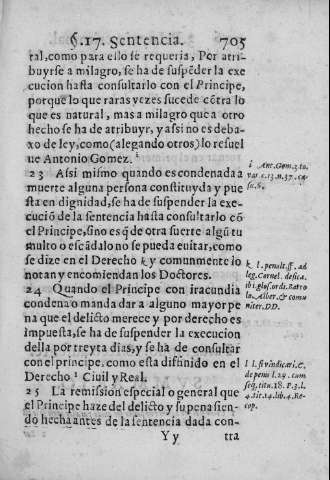 §.17. Sentencia. 705
ral, como para ello se requeria, Por atri
buyrse a milagro, se ha de suspẽder la exe
cucion hasta consultarlo con el Principe,
porque lo que raras vezes sucede cõtra lo
que es natural, mas a milagro que a otro
hecho se ha de atribuyr, y assi no es deba-
xo de ley, como (alegando otros) lo resuel
ue Antonio Gomez. i
23 Assi mismo quando es condenada a
muerte alguna persona constituyda y pue
sta en dignidad, se ha de suspender la exe-
cuciõ de la sentencia hasta consultarlo cõ
el Principe, sino es q̃ de otra suerte algũ tu
multo o escãdalo no se pueda euitar, como
se dize en el Derecho k y comunmente lo
notan y encomiendan los Doctores.
24 Quando el Principe con iracundia
condena o manda dar a alguno mayor pe
na que el delicto merece y por derecho es
impuesta, se ha de suspender la execucion
della por treyta dias, y se ha de consultar
con el principe. como esta difinido en el
Derecho l Ciuil y Real.
25 La remission especial o general que
el Principe haze del delicto y su pena sien-
do hecha antes de la sentencia dada con-
Yy tra
i Ant. Gom. 3. to.
var. c. 13. n. 37. ca-
k l. penult. ff. ad
leg. Cornel. de sica.
ibi glos. ords. Barto
la, Alber. & comu
niter. DD.
l l. si vindicari, C.
de pœni l. 29. cum
seq. titu. 18. P. 3. l.
4. tit. 14. lib. 4. Re-
cop.